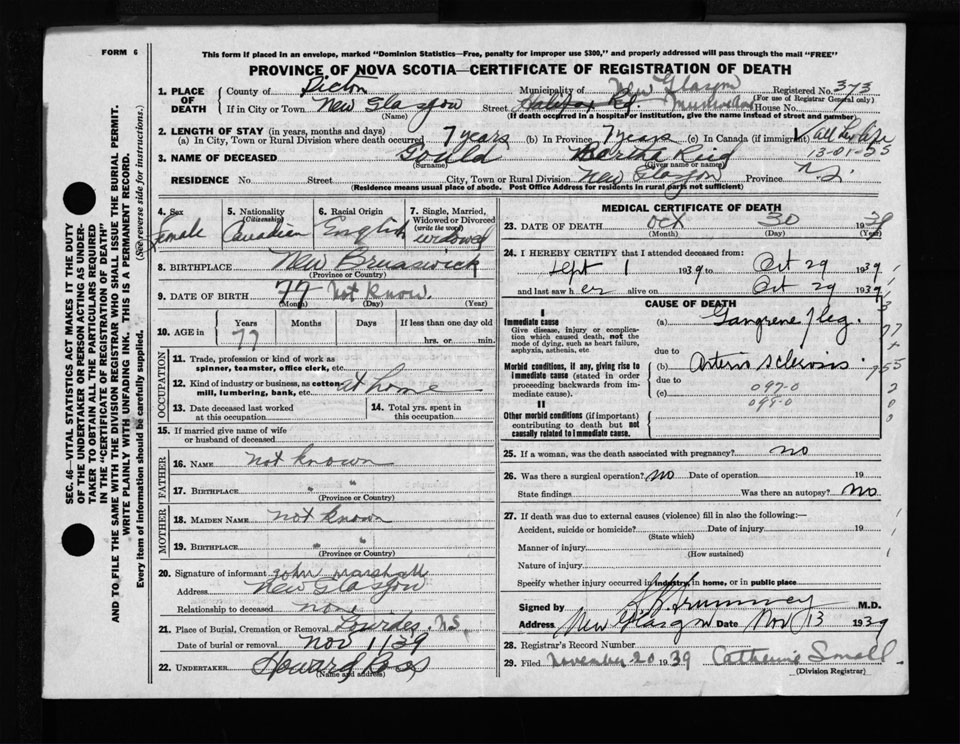 FORM 6
This form if placed in an envelope, marked "Dominion Statistics—Free, penalty for improper use $300," and properly addressed will pass through the mail "FREE"
PROVINCE OF NOVA SCOTIA—CERTIFICATE OF REGISTRATION OF DEATH
1. PLACE OF DEATH
County of Pictou Municipality of New Glasgow Registered No. 373
(For use of Registrar General only)
If in City or Town New Glasgow Street Halifax Rd. House No.
(Name) (If death occurred in a hospital or institution, give the name instead of street and number)
2. LENGTH OF STAY (in years, months and days)
(a) In City, Town or Rural Division where death occurred 7 years (b) In Province 7 years (c) In Canada (if immigrant) all her life
13-01-55
3. NAME OF DECEASED Gould
(Surname) (Given name or names)
RESIDENCE No. Street City, Town or Rural Division New Glasgow Province N.S.
(Residence means usual place of abode. Post Office Address for residents in rural parts not sufficient)
SEC. 46—VITAL STATISTICS ACT MAKES IT THE DUTY
OF THE UNDERTAKER OR PERSON ACTING AS UNDER-
TAKER TO OBTAIN ALL THE PARTICULARS REQUIRED
IN THE "CERTIFICATE OF REGISTRATION OF DEATH"
AND TO FILE THE SAME WITH THE DIVISION REGISTRAR WHO SHALL ISSUE THE BURIAL PERMIT.
WRITE PLAINLY WITH UNFADING INK. THIS IS A PERMANENT RECORD.
Every item of information should be carefully supplied. (See reverse side for instructions.)
4. Sex Female
5. Nationality (Citizenship) Canadian
6. Racial Origin English
7. Single, Married, Widowed or Divorced (write the word) widowed
8. BIRTHPLACE New Brunswick
(Province or Country)
9. DATE OF BIRTH 77 not know.
(Month) (Day) (Year)
10. AGE in Years Months Days If less than one day old
77 hrs. or min.
OCCUPATION
11. Trade, profession or kind of work as
spinner, teamster, office clerk, etc.
12. Kind of industry or business, as cotton
mill, lumbering, bank, etc. at home
13. Date deceased last worked
at this occupation
14. Total yrs. spent in
this occupation
15. If married give name of wife
or husband of deceased
FATHER
16. NAME not known
17. BIRTHPLACE " "
(Province or Country)
MOTHER
18. MAIDEN NAME not known
19. BIRTHPLACE " "
(Province or Country)
20. Signature of informant John Marshall
Address New Glasgow
Relationship to deceased none
21. Place of Burial, Cremation or Removal Lourdes N.S.
Date of burial or removal Nov 1 39
22. UNDERTAKER Howard Ross
(Name and address)
MEDICAL CERTIFICATE OF DEATH
23. DATE OF DEATH Oct 30 1939
(Month) (Day) (Year)
24. I HEREBY CERTIFY that I attended deceased from:
Sept 1 1939 to Oct 29 1939
and last saw her alive on Oct 29 1939
CAUSE OF DEATH
I
Immediate cause
Give disease, injury or complica-
tion which caused death, not the
mode of dying, such as heart failure,
asphyxia, asthenia, etc
(a) Gangrene leg.
due to
Morbid conditions, if any, giving rise to
immediate cause (stated in order
proceeding backwards from im-
mediate cause).
(b) Arterio sclerosis.
due to
(c) 097-0
099-0
II
Other morbid conditions (if important)
contributing to death but not
causally related to immediate cause.
25. If a woman, was the death associated with pregnancy? no
26. Was there a surgical operation? no Date of operation 19
State findings Was there an autopsy? no
27. If death was due to external causes (violence) fill in also the following:—
Accident, suicide or homicide? Date of injury 19
(State which)
Manner of injury
(How sustained)
Nature of injury
Specify whether injury occurred in industry, in home, or in public place
Signed by M.D.
Address New Glasgow Date Nov 13 1939
28. Registrar's Record Number
29. Filed November 20 1939 Catherine Small
(Division Registrar)